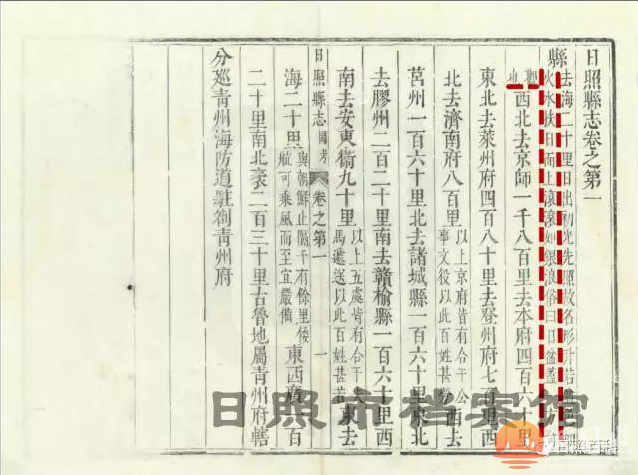 日照縣志卷之第一
縣去海二十里日出初光先照故名形升若
火水扶日而上滾滾如銀浪俗曰日盆蓋
觀也西北去京師一千八百里去本府四百六十里
東北去萊州府四百八十里去登州府七百里
北去濟南府八百里以上京府皆有合干公事文役以此百姓甚西去
莒州一百六十里北去諸城縣一百六十里東北
去膠州二百二十里南去贛榆縣一百六十里
南去安東衛九十里以上五處皆有合干馬遞送以此百姓甚苦東去
日照縣志 卷之第一 一
海二十里與朝鮮止隔千有餘里倭航可乘風而至宜嚴備東西廣一百
二十里南北袤二百三十里古魯地屬青州府轄
分巡青州海防道駐劄青州府
日照市档案馆
日照百科